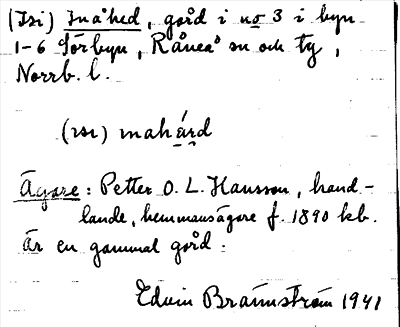 (Isi) Småhed, gård i no 3 i byn
1-6 Sörbyn, Råneå sn och tg,
Norrb. l.
(ısı) mahård
Ägare: Petter O. L. Hansson, hand-
lande, hemmansägare f. 1890 kb.
Är en gammal gård.
Edvin Brännström 1941